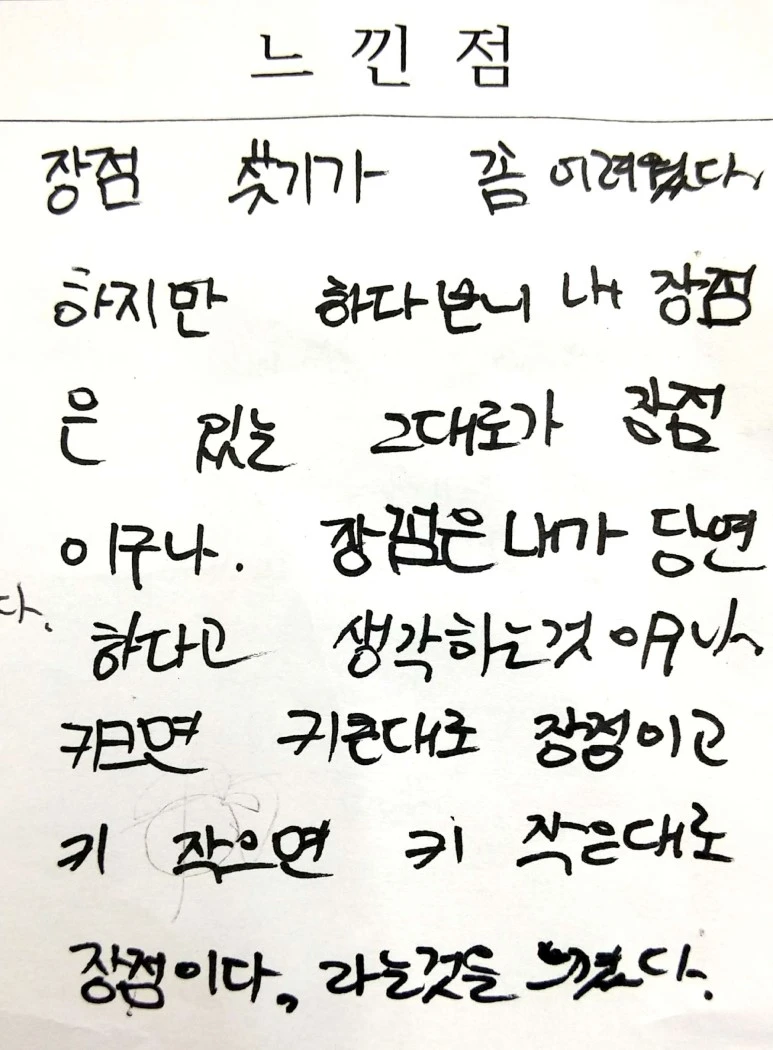 느낀점
장점 찾기가 꼼 어려웠다.
하지만 하다보니 내 장점
은 있는 그대로가 장점
이구나. 장점은 내가 당연
다.
하다고 생각하는것이구나.
키크면 키큰대로 장점이고
키 작으면 키 작은대로
장점이다, 라는것을 느꼈다.